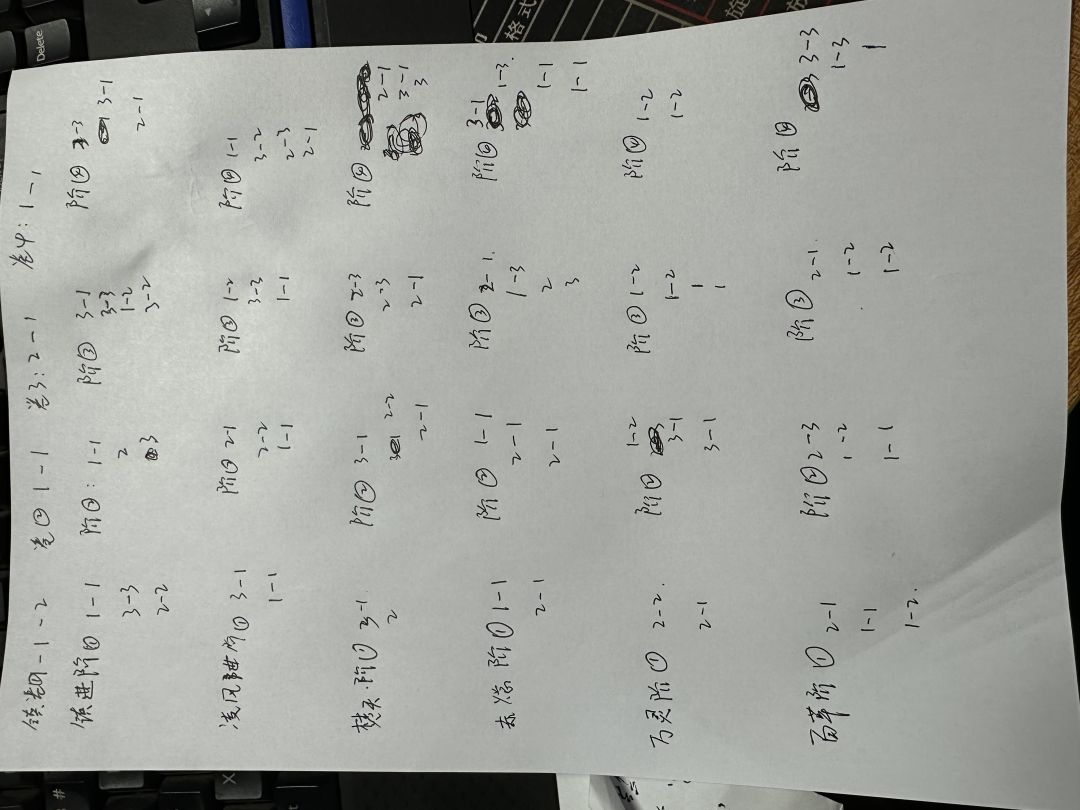 卷① 1-1 卷3:2-1 卷4:1-1
进阶① 1-1
3-3
2-2
阶②:1-1
2
3
阶③ 3-1
3-3
1-2
3-2
阶④
3-1
2-1
凌风进阶① 3-1
1-1
阶② 2-1
2-2
1-1
阶③ 1-2
3-3
1-1
阶④ 1-1
3-2
2-3
2-1
焚天·阶①
2
阶② 3-1
2-2
2-1
阶③ 2-3
2-3
2-1
阶④
2-1
3-1
3
阶① 1-1
2-1
阶② 1-1
2-1
2-1
阶③ 2-1.
1-3
2
3
阶④ 3-1
1-3.
1-1
1-1
万灵阶① 2-2
2-1
阶② 1-2
3-1
3-1
阶③ 1-2
1-2
1
1
阶④ 1-2
1-2
百草阶① 2-1
1-1
1-2.
阶② 2-3
1-2
1-1
阶③ 2-1.
1-2
1-2
阶④ 3-3
1-3
1
Delete
X
#
格式
旋
旋